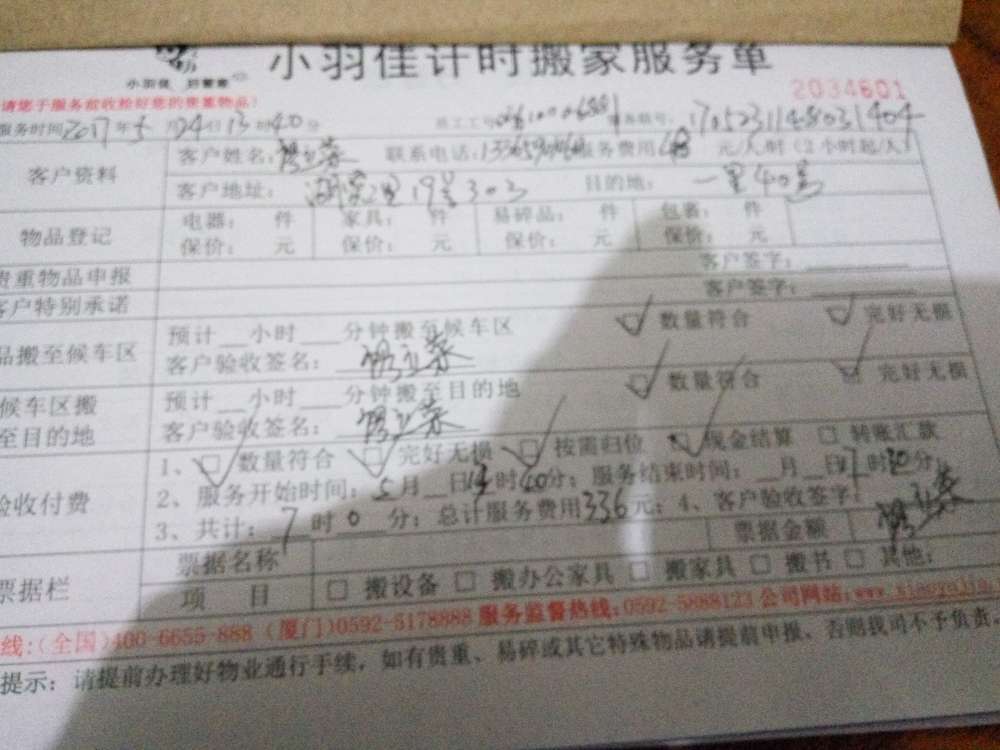 小羽佳计时搬家服务单
小羽佳 好管家
2034601
请您于服务前收检好您的贵重物品!
服务时间2017年5月24日13时40分 员工工号 服务单号: 1705231148031404
客户资料
客户姓名: 联系电话: 服务费用48元/人/时(2小时起/人
客户地址: 湖里19号303 目的地: 一里40号
物品登记
电器: 件 家具: 件 易碎品: 件 包裹: 件
保价: 元 保价: 元 保价: 元 保价: 元
贵重物品申报 客户签字:
客户特别承诺 客户签字:
品搬至候车区
预计__小时___分钟搬至候车区 数量符合 完好无损
客户验收签名:
候车区搬
至目的地
预计__小时___分钟搬至目的地 数量符合 完好无损
客户验收签名:
验收付费
1、□数量符合 □完好无损 □按需归位 □现金结算 □转账汇款
2、服务开始时间: 5月__日13时40分; 服务结束时间:__月__日17时20分;
3、共计: 7时0分; 总计服务费用336元; 4、客户验收签字:
票据栏
票据名称 票据金额
项 目 □搬设备 □搬办公家具 □搬家具 □搬书 □其他:
线:(全国)400-6655-888 (厦门)0592-5178888 服务监督热线:0592-5888123 公司网站:www.
提示: 请提前办理好物业通行手续,如有贵重、易碎或其它特殊物品请提前申报、否则我司不予负责。